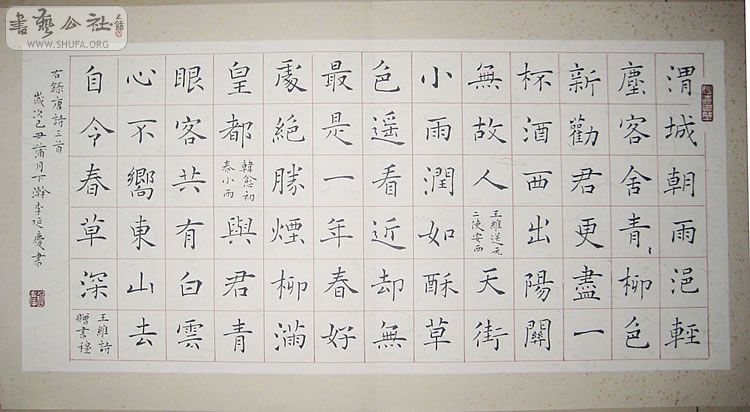 渭城朝雨浥輕
塵客舍青〻柳色
新勸君更盡一
杯酒西出陽關
無故人
王維送元
二使安西
天街
小雨潤如酥草
色遥看近却無
最是一年春好
處絕勝煙柳滿
皇都
韓愈初
春小雨
與君青
眼客共有白雲
心不嚮東山去
自令春草深
王維詩
贈韋穆
右錄唐詩三首
歲次己丑蒲月下澣李延慶書
書藝公社
WWW.SHUFA.ORG